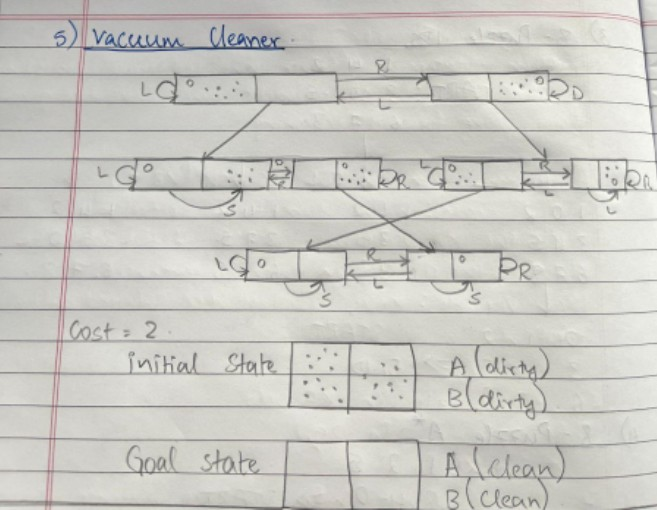 5) Vacuum Cleaner.
R
L L D
L R L R R
S L L
L R R
L
S S
Cost = 2.
initial State A (dirty)
B (dirty)
Goal state A (clean)
B (clean)